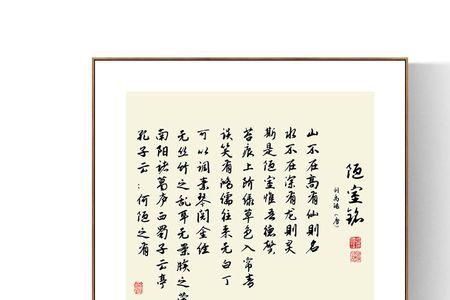 陋室铭
刘禹锡(唐)
山不在高有仙則名
水不在深有龙則灵
斯是陋室惟吾德馨
苔痕上阶绿草色入帘青
谈笑有鸿儒往来无白丁
可以调素琴阅金经
无丝竹之乱耳无案牍之劳
南阳诸葛庐西蜀子云亭
孔子云:何陋之有